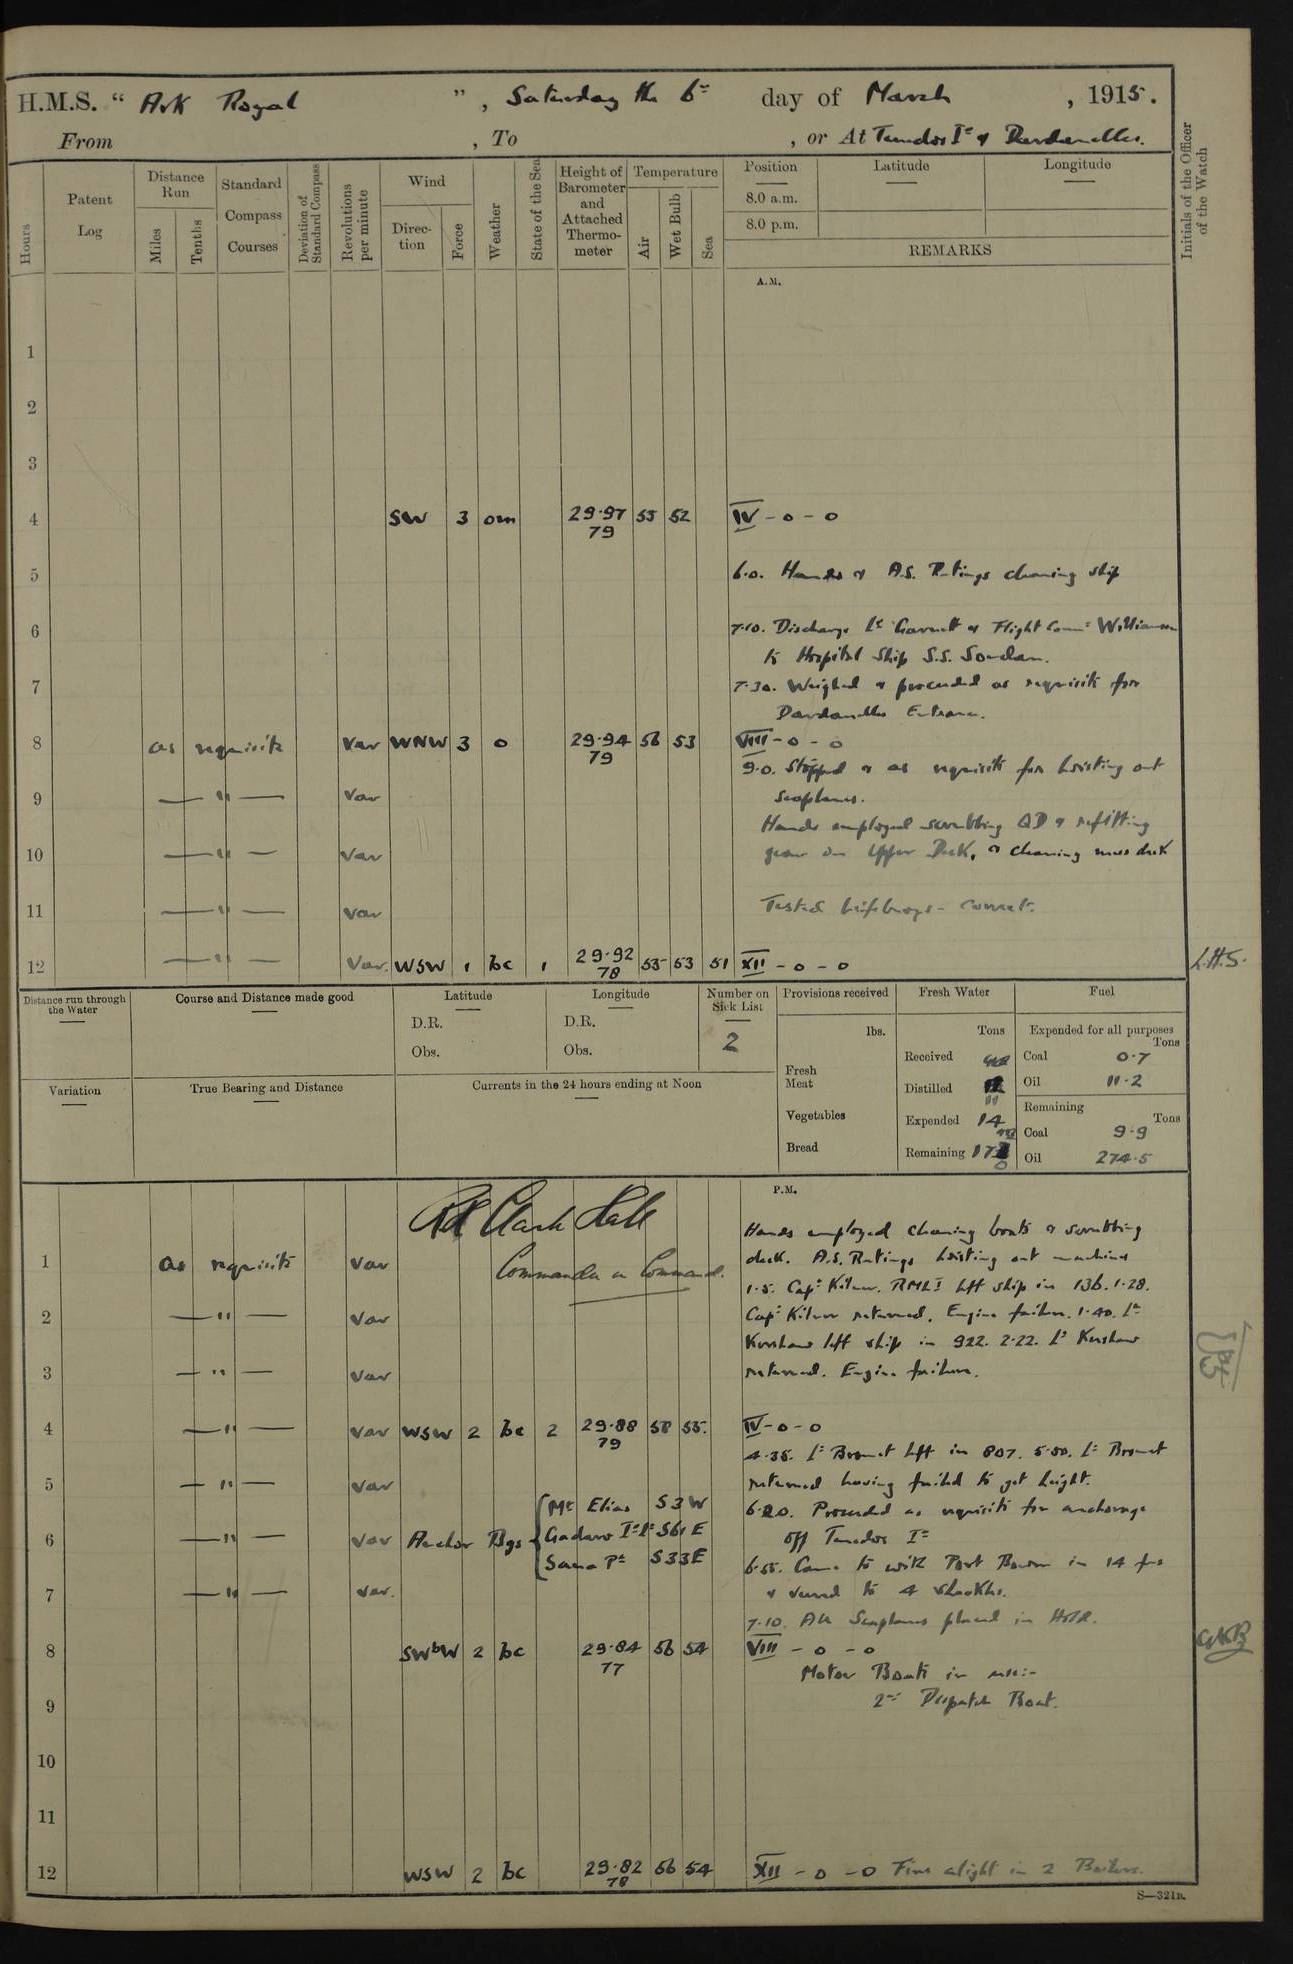 H.M.S. “ Ark Royal ” , Saturday the 6th day of March , 1915.
From , To , or At Tenedos Id & Dardanelles.
Hours
Patent Log
Distance Run
Miles
Tenths
Standard Compass Courses
Deviation of Standard Compass
Revolutions per minute
Wind
Direction
Force
Weather
State of the Sea
Height of Barometer and Attached Thermometer
Temperature
Air
Wet Bulb
Sea
Position
8.0 a.m.
8.0 p.m.
Latitude
Longitude
REMARKS
Initials of the Officer of the Watch
A.M.
1
2
3
4 SW 3 om 29·97 55 52 IV - 0 - 0
79
5 6.0. Hands & A.S. Ratings cleaning ship
6 7.10. Discharge Lt Garnett & Flight Comr Williamson
to Hospital Ship S.S. Soudan.
7 7.30. Weighed & proceeded as requisite for
Dardanelles Entrance.
8 as requisite var WNW 3 o 29·94 56 53 VIII - 0 - 0
79
9.0. Stopped & as requisite for hoisting out
9 — " — var Seaplanes.
Hands employed scrubbing QD & refitting
10 — " — var gear on Upper Deck, & cleaning mess deck
11 — " — var Tested lifebuoys - correct.
12 — " — var. WSW 1 bc 1 29·92 55 53 51 XII - 0 - 0 L.H.S.
78
Distance run through the Water
Course and Distance made good
Latitude
D.R.
Obs.
Longitude
D.R.
Obs.
Number on Sick List
2
Provisions received
lbs.
Fresh Meat
Vegetables
Bread
Fresh Water
Tons
Received
Distilled 11
Expended 14
Remaining
Fuel
Expended for all purposes
Tons
Coal 0·7
Oil 11·2
Remaining
Tons
Coal 9·9
Oil 274·5
Variation
True Bearing and Distance
Currents in the 24 hours ending at Noon
Clark Hall
Commander in Command.
P.M.
Hands employed cleaning boats & scrubbing
1 as requisite var deck. A.S. Ratings hoisting out machines
1.5. Capt Kilner. RMLI left ship in 136. 1.28.
2 — " — var Capt Kilner returned. Engine failure. 1.40. Lt
Kershaw left ship in 922. 2.22. Lt Kershaw
3 — " — var returned. Engine failure.
4 — " — var WSW 2 bc 2 29·88 58 55. IV - 0 - 0
79
4.35. Lt Bromet left in 807. 5.50. Lt Bromet
5 — " — var returned having failed to get height.
Mt Elias S3W 6.20. Proceeded as requisite for anchorage
6 — " — var Anchor Bgs Gadaro Id Lt S61E off Tenedos Id
Sana Pt S33E 6.55. Came to with Port Bower in 14 fms
7 — " — var. & veered to 4 shackles.
7.10. All Seaplanes placed in Hold.
8 SWbW 2 bc 29·84 56 54 VIII - 0 - 0
77
Motor Boats in use:-
9 2nd Despatch Boat.
10
11
12 WSW 2 bc 29·82 56 54 XII - 0 - 0 Fires alight in 2 Boilers.
78
S—321B.